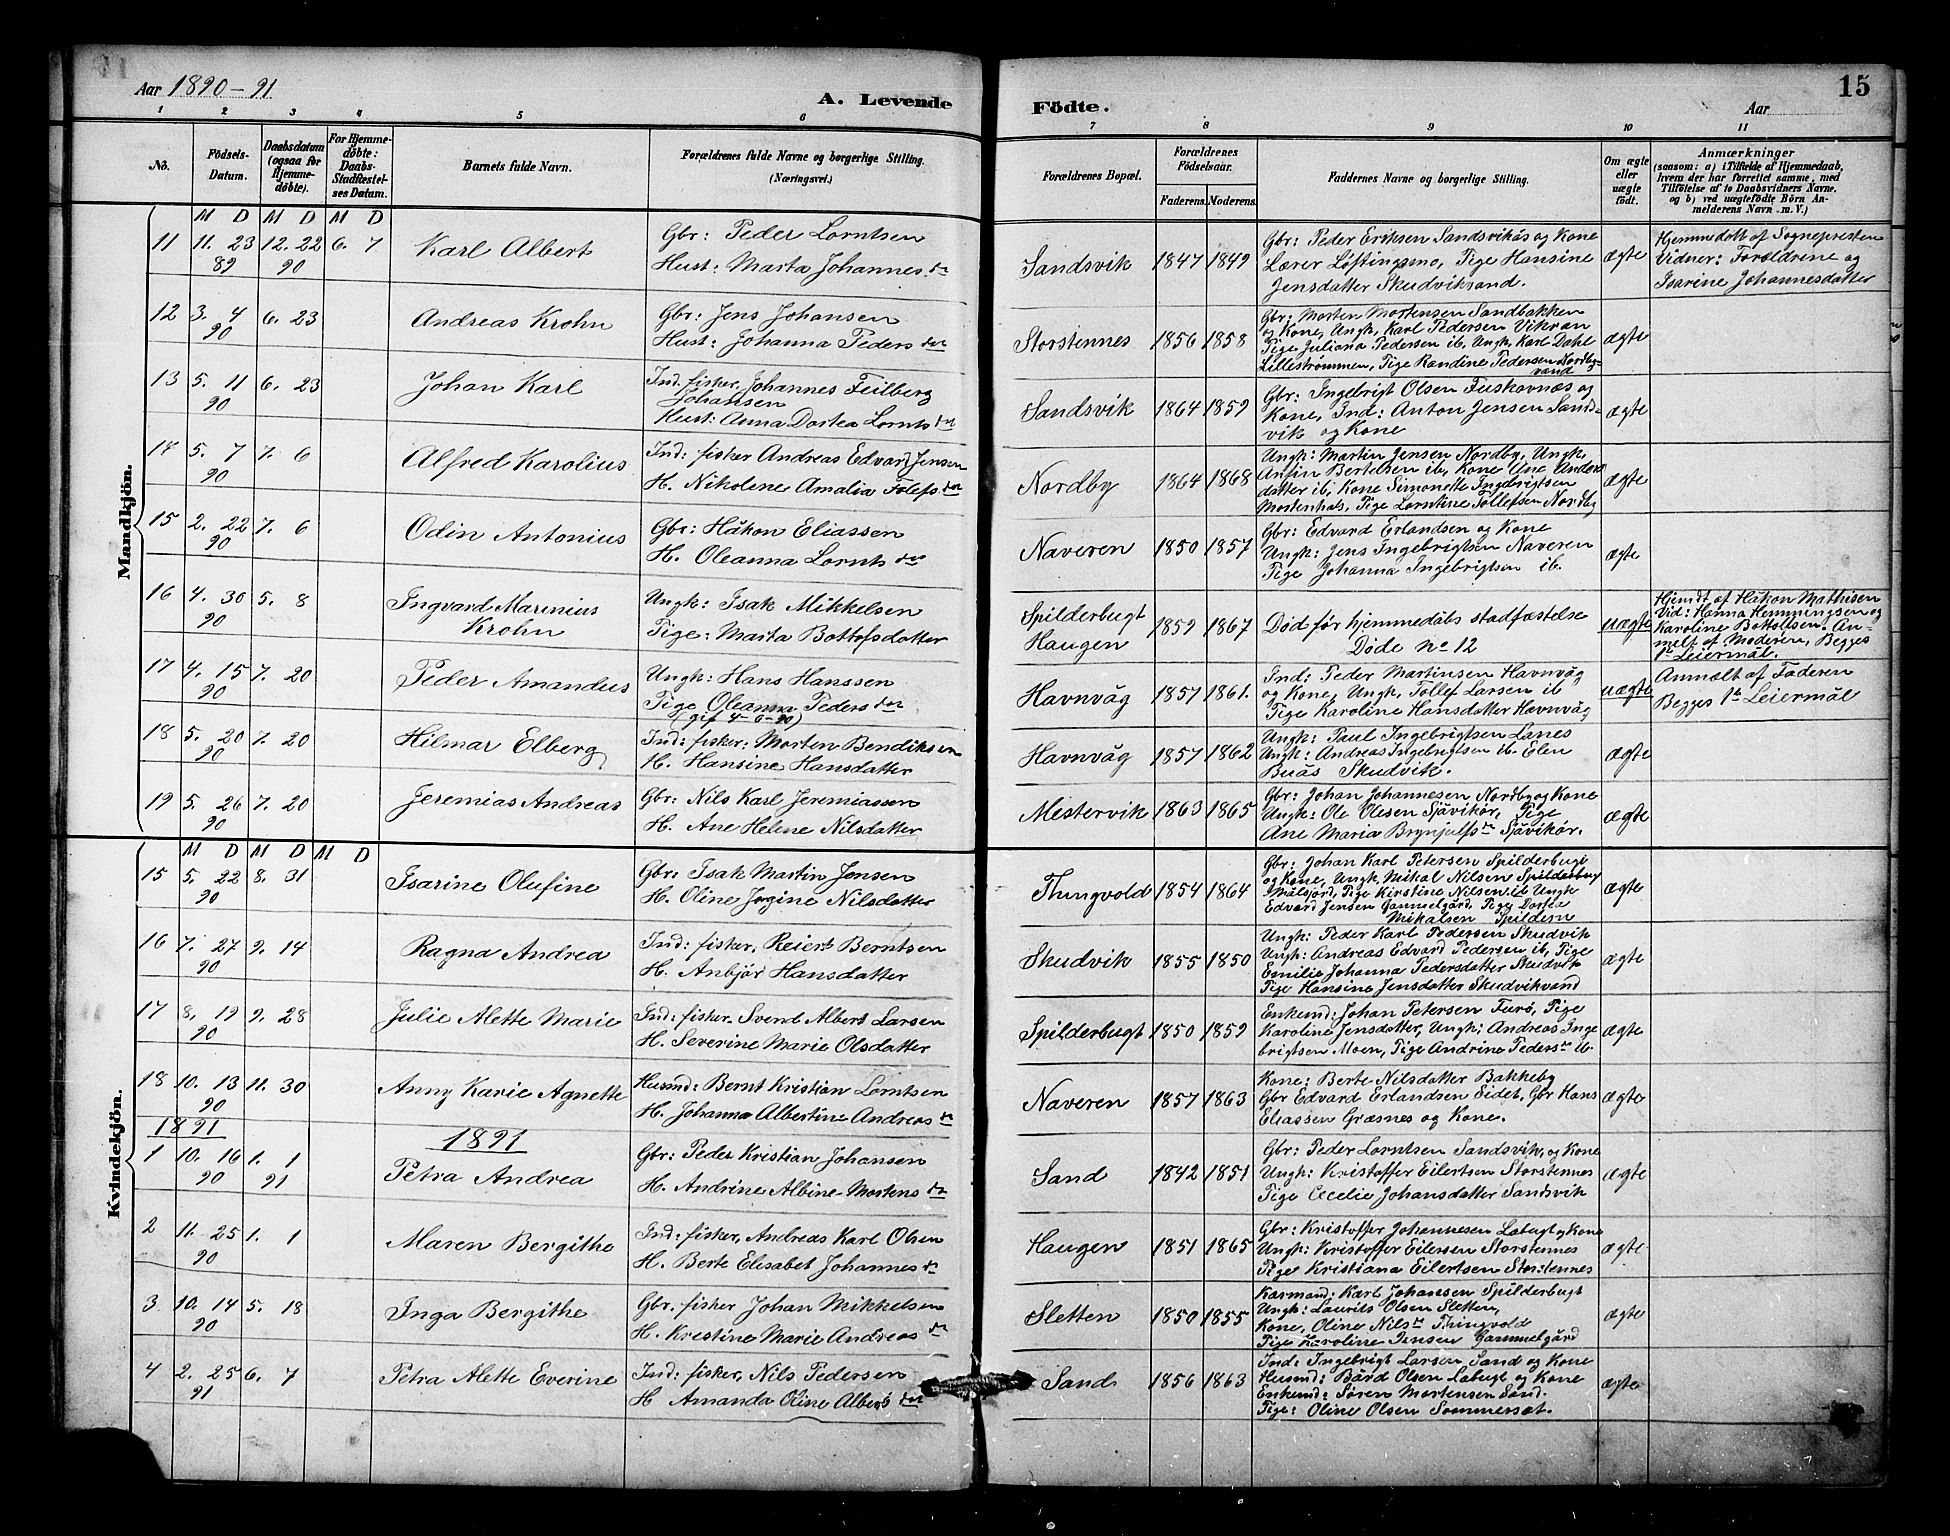 Aar 1890-91
A. Levende Födte.
Aar
15
1 2 3 4 5 6 7 8 9 10 11
No. Födsels-Datum. Daabsdatum (ogsaa for Hjemmedöbte). For Hjemmedöbte: Daabs-Stadfæstelses Datum. Barnets fulde Navn. Forældrenes fulde Navne og borgerlige Stilling. (Næringsvei.) Forældrenes Bopæl. Forældrenes Födselsaar. Faderens. Moderens. Faddernes Navne og borgerlige Stilling. Om ægte eller uægte födt. Anmærkninger (saasom: a) i Tilfælde af Hjemmedaab, hvem der har forrettet samme, med Tilföielse af to Daabsvidners Navne, og b) ved uægtefödte Börn Anmelderens Navn m. V.)
Mandkjön.
M D M D M D
11 11. 23 89 12. 22 90 6. 7 Karl Albert
Gbr: Peder Lorntsen
Hust: Marta Johannes dr
Sandsvik 1847 1849
Gbr: Peder Eriksen Sandsvikås og Kone
Lærer Løftingsmo, Pige Hansine
Jensdatter Skudviksand.
ægte
Hjemmedøbt af Sognepresten
Vidner: Forældrene og
Isarine Johannesdatter
12 3. 4 90 6. 23 Andreas Krohn
Gbr: Jens Johansen
Hust: Johanna Peders dtr
Storstennes 1856 1858
Gbr: Morten Mortensen Sandbakken
og Kone, Ungk. Karl Pedersen Vikran
Pige Juliana Pedersen ib, Ungk. Karl Dahl
Lillestrømmen, Pige Randine Pedersen Nordby-
vand
ægte
13 5. 11 90 6. 23 Johan Karl
Ind. fisker, Johannes Feilberg
Johansen
Hust: Anna Dortea Lornts dtr
Sandsvik 1864 1859
Gbr: Ingebrigt Olsen Fuskavnæs og
Kone, Ind: Anton Jensen Sands-
vik og Kone
ægte
14 5. 7 90 7. 6 Alfred Karolius
Ind: fisker Andreas Edvard Jensen
H. Nikolene Amalia Tolefs dtr
Nordby 1864 1868
Ungk: Martin Jensen Nordby, Ungk.
Anfin Bertelsen ib, Kone Ane Anders
datter ib, Kone Simonette Ingebrigtsen
Mortenhals, Pige Lorntine Tollefsen Nordby
ægte
15 2. 22 90 7. 6 Odin Antonius
Gbr: Håkon Eliassen
H. Oleanna Lornts dtr
Naveren 1850 1857
Gbr: Edvard Erlandsen og Kone
Ungk: Jens Ingebrigtsen Naveren
Pige Johanna Ingebrigtsen ib.
ægte
16 4. 30 90 5. 8 Ingvard Marinius
Krohn
Ungk: Isak Mikkelsen
Pige: Marta Bottofsdatter
Spilderbugt
Haugen 1859 1867
Død før hjemmedåbs stadfæstelse
Døde no 12
uægte
Hjemdt af Håkon Mathisen
Vid: Hanna Hemmingsen og
Karoline Bottolfsen. An-
melt af Moderen, Begges
1ste Leiermål.
17 4. 15 90 7. 20 Peder Amandus
Ungk: Hans Hanssen
Pige Oleanna Peders dtr
(gift 4-6-90)
Havnvåg 1857 1861.
Ind: Peder Martinsen Havnvåg
og Kone, Ungk. Tollef Larsen ib
Pige Karoline Hansdatter Havnvåg
uægte
Anmeldt af Faderen
Begges 1ste Leiermål
18 5. 20 90 7. 20 Hilmar Elberg
Ind: fisker: Morten Bendiksen
H. Hansine Hansdatter
Havnvåg 1857 1862
Ungk: Paul Ingebrigtsen Lanes
Ungk: Andreas Ingebrigtsen ib. Elen
Buås Skudvik.
ægte
19 5. 26 90 7. 20 Jeremias Andreas
Gbr: Nils Karl Jeremiassen
H. Ane Helene Nilsdatter
Mestervik 1863 1865
Gbr: Johan Johannesen Nordby og Kone
Ungk: Ole Olesen Sjåvikør, Pige
Ane Maria Brynjulfs dtr Sjåvikør.
ægte
Kvindekjön.
M D M D M D
15 5. 22 90 8. 31 Isarine Olufine
Gbr: Isak Martin Jensen
H. Oline Jørgine Nilsdatter
Thingvold 1854 1864
Gbr: Johan Karl Petersen Spilderbugt
og Kone, Ungk. Mikal Nilsen Spilderbug
Målsjord, Pige Kirstine Nilsen ib Ungk
Edvard Jensen Gammelgård, Pige Dortea
Mikalsen Spildern
ægte
16 7. 27 90 9. 14 Ragna Andrea
Ind: fisker, Reiert Berntsen
H. Anbjør Hansdatter
Skudvik 1855 1850
Ungk: Peder Karl Pedersen Skudvik
Ungk: Andreas Edvard Pedersen ib, Pige
Emilie Johanna Pedersdatter Skudvik
Pige Hansine Jensdatter Skudvikvand
ægte
17 8. 19 90 9. 28 Julie Alette Marie
Ind: fisker. Svend Albert Larsen
H. Severine Marie Olsdatter
Spilderbugt 1850 1859
Enkemd: Johan Petersen Furø, Pige
Karoline Jensdatter, Ungk: Andreas Inge
brigtsen Moen, Pige Andrine Peders dtr ib.
ægte
18 10. 13 90 11. 30 Anny Karie Agnette
Husmd: Bernt Kristian Lorntsen
H. Johanna Albertine Andreas dr
Naveren 1857 1863
Kone: Berte Nilsdatter Bakkeby
Gbr Edvard Erlandsen Eidet, Gbr Hans
Eliassen Græsnes og Kone.
ægte
1891 1891
1 10. 16 90 1. 1 91 Petra Andrea
Gbr: Peder Kristian Johansen
H. Andrine Albine Mortens dtr
Sand 1842 1851
Gbr: Peder Lorntsen Sandsvik, og Kone
Ungk: Kristoffer Eilertsen Storstennes
Pige Cecelie Johansdatter Sandsvik
ægte
2 11. 25 90 1. 1 Maren Bergithe
Ind: fisker, Andreas Karl Olsen
H. Berte Elisabet Johannes dr
Haugen 1851 1865
Gbr: Kristoffer Johannesen Labugt og Kone
Ungk: Kristoffer Eilersen Storstennes
Pige Kristiana Eilertsen Storstennes
ægte
3 10. 14 90 5. 18 Inga Bergithe
Gbr. fisker Johan Mikkelsen
H. Krestine Marie Andreas dr
Sletten 1850 1855
Kårmand: Karl Johanssen Spilderbugt
Ungk: Laurits Olsen Sletten,
Kone, Oline Nils dr Thingvold
Pige Karoline Jensen Gammelgård
ægte
4 2. 25 91 6. 7 Petra Alette Everine
Ind: fisker, Nils Pedersen
H Amanda Oline Alberts dtr
Sand 1856 1863
Ind: Ingebrigt Larsen Sand og Kone
Husmd: Bård Olsen Labugt og Kone
Enkemd: Søren Mortensen Sand.
Pige: Oline Olsen Sommersæt.
ægte